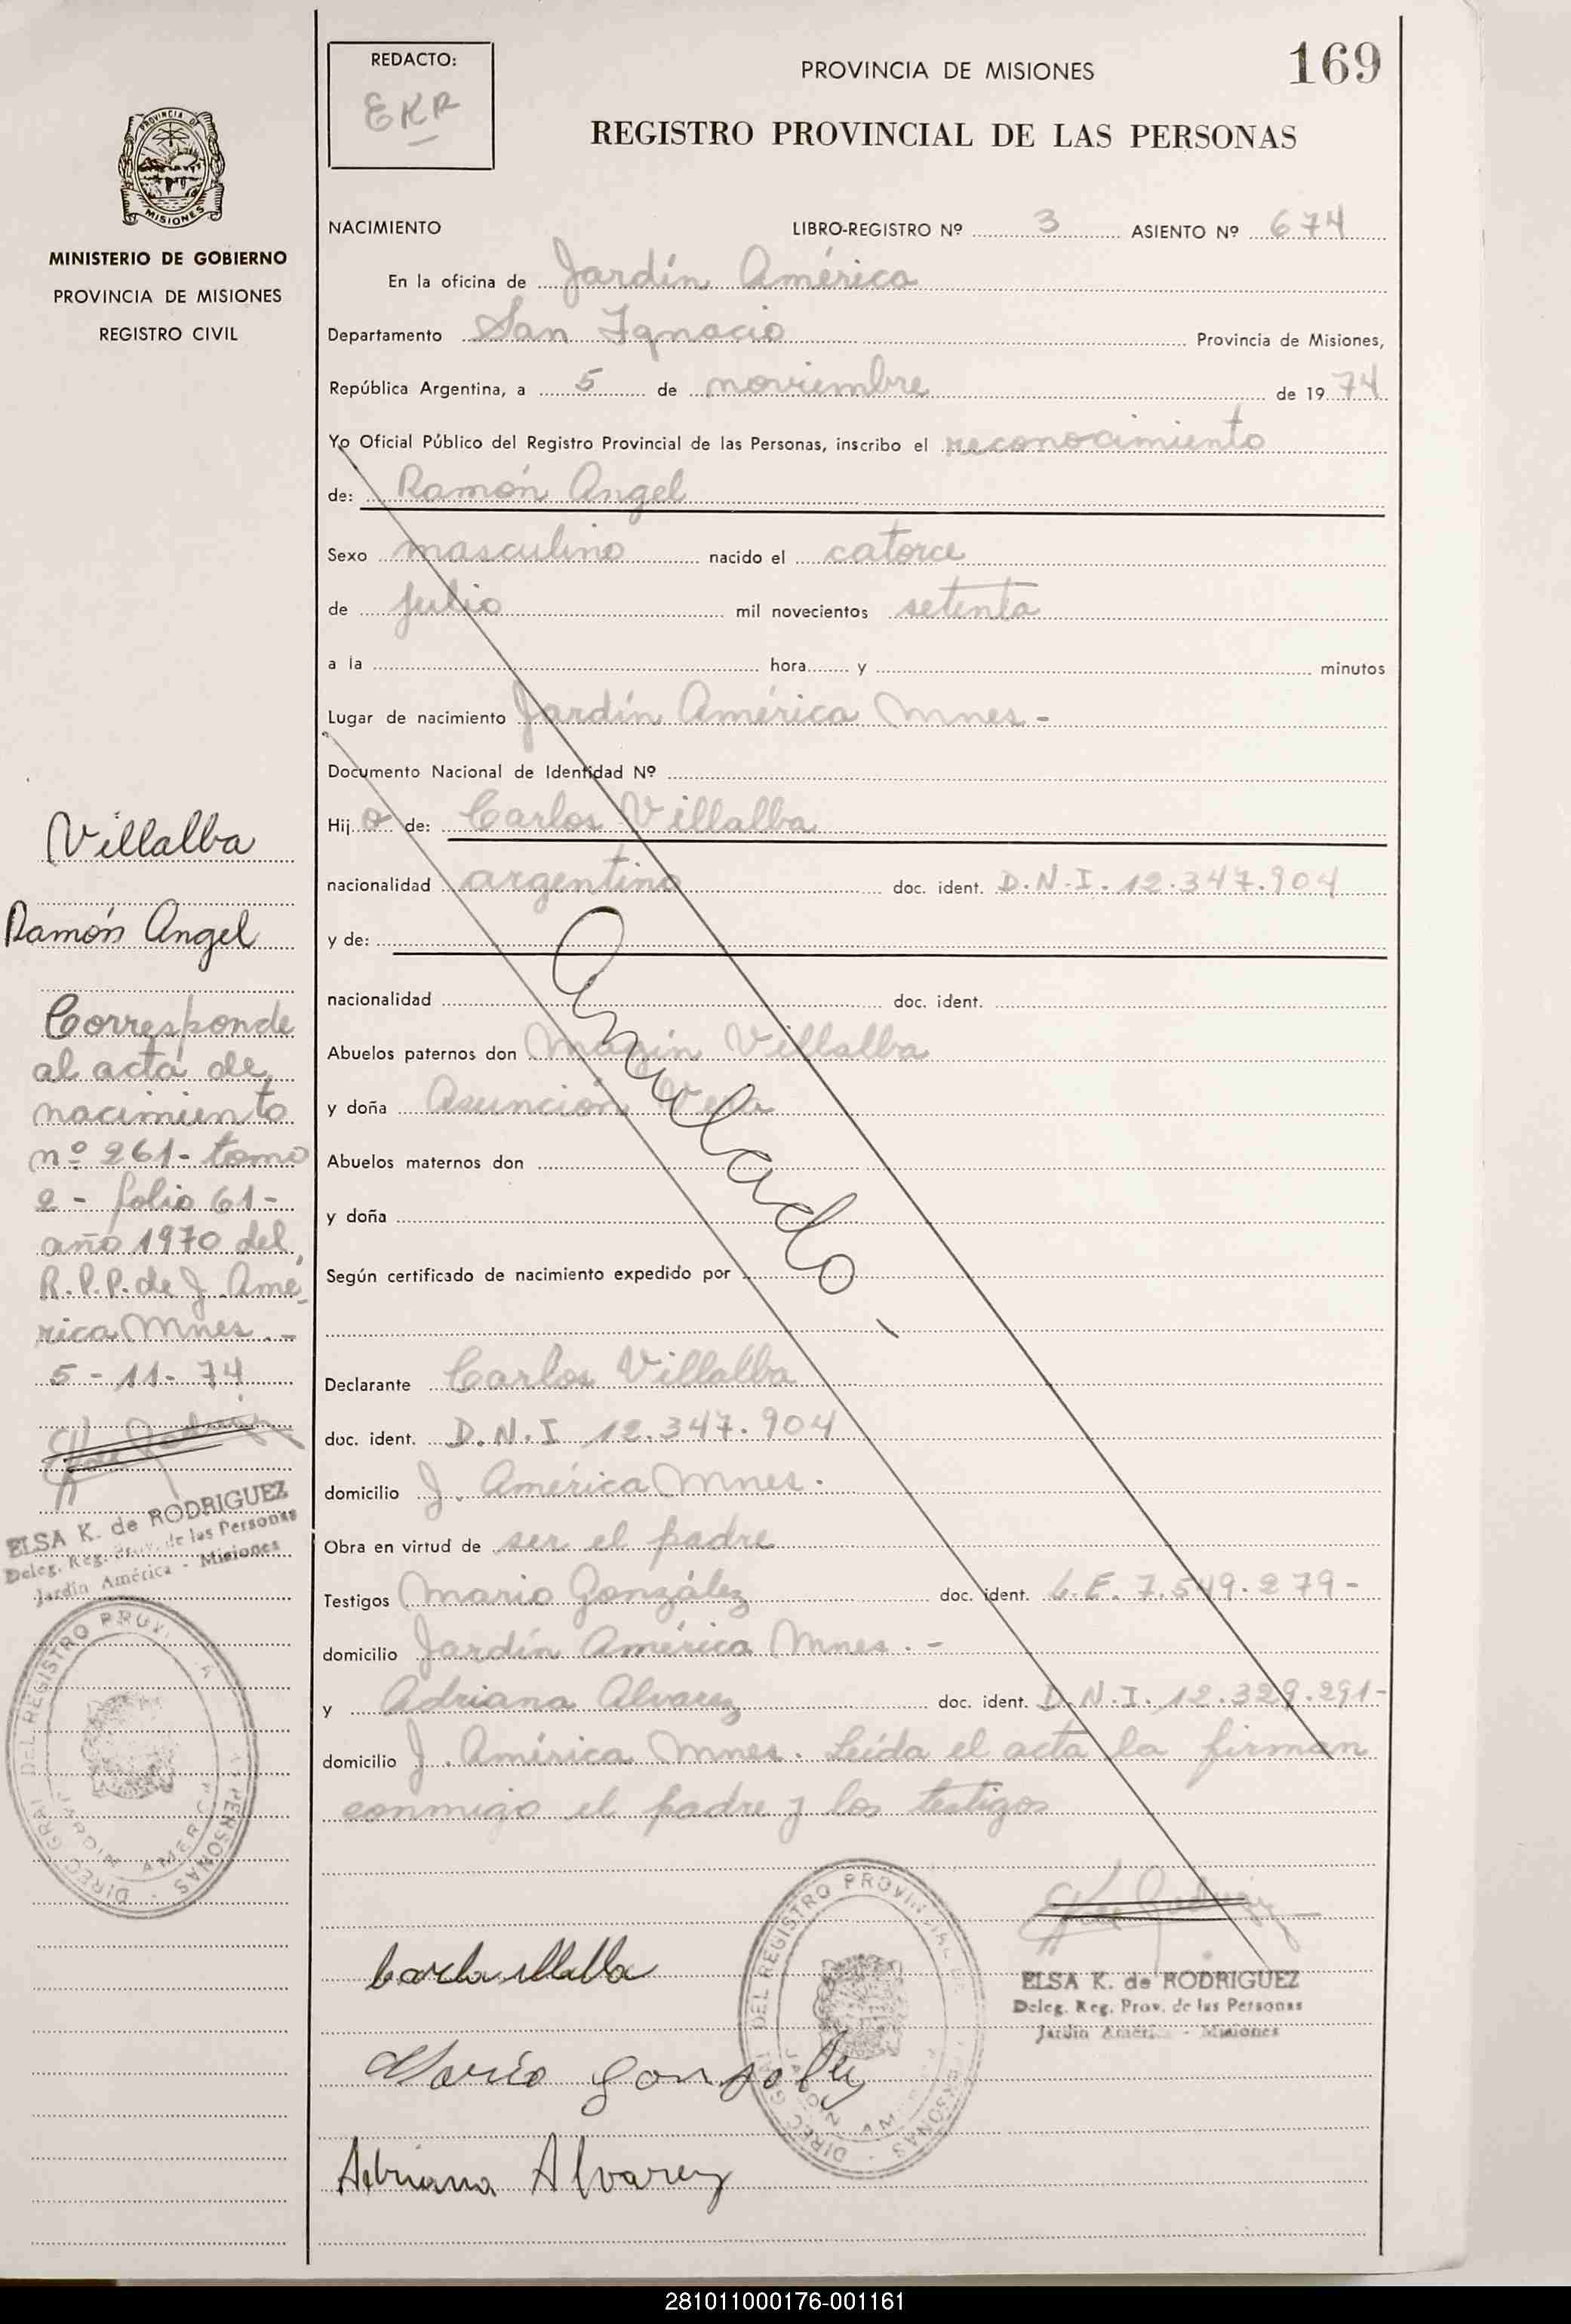 REDACTO:
EKR
PROVINCIA DE MISIONES
169
REGISTRO PROVINCIAL DE LAS PERSONAS
PROVINCIA D
MISIONES
MINISTERIO DE GOBIERNO
PROVINCIA DE MISIONES
REGISTRO CIVIL
NACIMIENTO LIBRO-REGISTRO Nº 3 ASIENTO Nº 674
En la oficina de Jardín América
Departamento San Ignacio Provincia de Misiones,
República Argentina, a 5 de noviembre de 1974
Yo Oficial Público del Registro Provincial de las Personas, inscribo el reconocimiento
de: Ramón Angel
Sexo masculino nacido el catorce
de julio mil novecientos setenta
a la hora y minutos
Lugar de nacimiento Jardín América Mnes -
Documento Nacional de Identidad Nº
Hijo de: Carlos Villalba
nacionalidad argentino doc. ident. D.N.I. 12.347.904
y de:
nacionalidad doc. ident.
Abuelos paternos don Magin Villalba
y doña Asunción Vera
Abuelos maternos don
y doña
Según certificado de nacimiento expedido por
Anulado -
Declarante Carlos Villalba
doc. ident. D.N.I 12.347.904
domicilio J. América Mnes.
Obra en virtud de ser el padre
Testigos Mario González doc. ident. L.E. 7.549.279-
domicilio Jardín América Mnes. -
y Adriana Alvarez doc. ident. D.N.I. 12.329.291-
domicilio J. América Mnes. Leída el acta la firman
conmigo el padre y los testigos
Villalba
Ramón Angel
Corresponde
al acta de
nacimiento
nº 261- tomo
2 - folio 61-
año 1970 del
R.P.P. de J. Amé-
rica Mnes.-
5-11-74
ELSA K. de RODRIGUEZ
Deleg. Reg. Prov. de las Personas
Jardín América - Misiones
DIREC GRAL DEL REGISTRO PROV PERSONAS
JARDIN AMERICA
ELSA K. de RODRIGUEZ
Deleg. Reg. Prov. de las Personas
Jardín América - Misiones
DIREC GRAL DEL REGISTRO PROVIN PERSONAS
Mario Gonzalez
Adriana Alvarez
281011000176-001161